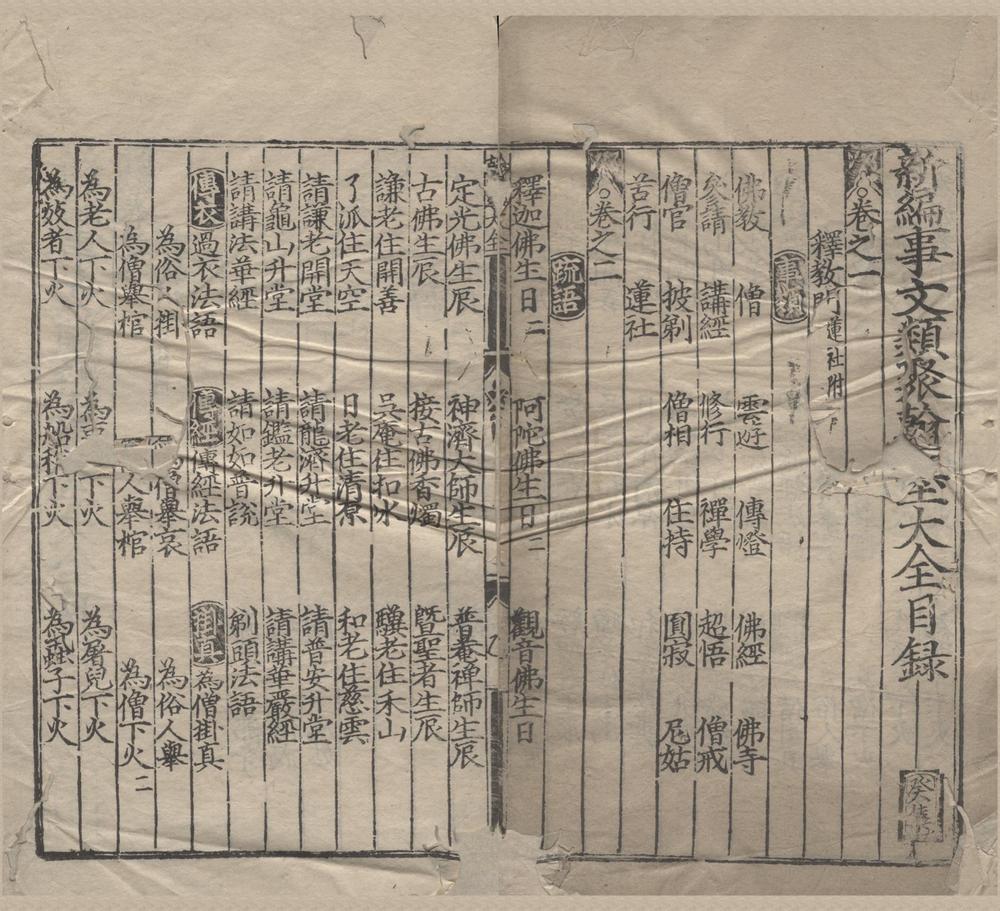 新編事文類聚翰 大全目録 癸集
卷之一
釋教門 蓮社附
事類
佛教 僧 雲遊 傳燈 佛經 佛寺
參請 講經 修行 禪學 超悟 僧戒
僧官 披剃 僧相 住持 圓寂 尼姑
苦行 蓮社
卷之二
疏語
釋迦佛生日二 阿陀佛生日二 觀音佛生日
定光佛生辰 神濟大師生辰 普菴禪師生辰
古佛生辰 接古佛香燭 暨聖者生辰
謙老住開善 吳庵住扣氷 驥老住禾山
了派住天空 日老住清原 和老住慈雲
請謙老開堂 請龍濟升堂 請普安升堂
請龜山升堂 請鑑老升堂 請講華嚴經
請講法華經 請如如普説 剃頭法語
傳衣 過衣法語 傳經 傳經法語 掛真 為僧掛真
為俗人掛 為僧舉哀 為俗人舉
為僧舉棺 人舉棺 為僧下火二
為老人下火 為 下火 為屠兒下火
為效者下火 為船稍下火 為 子下火